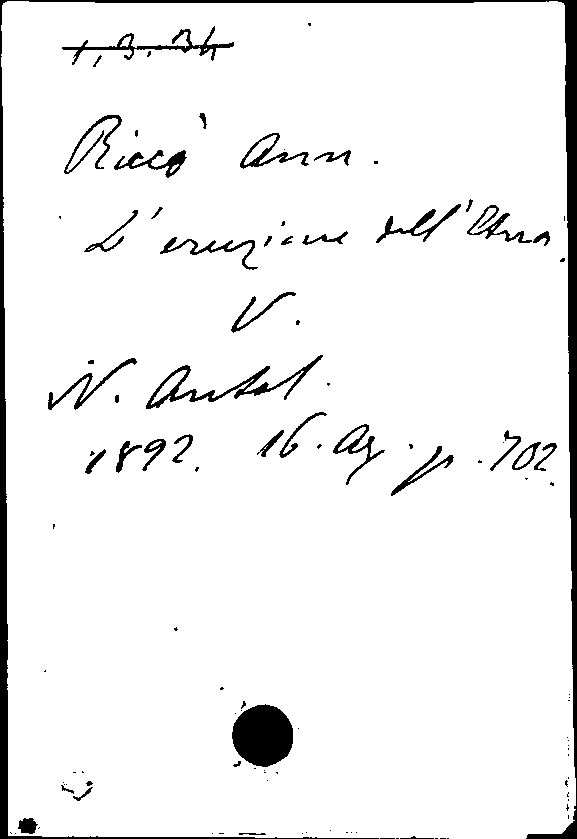 1.3.34
Riccò Ann.
L'eruzione dell'Etna.
V.
N. Antol.
1892. 16. Ag. p. 702.